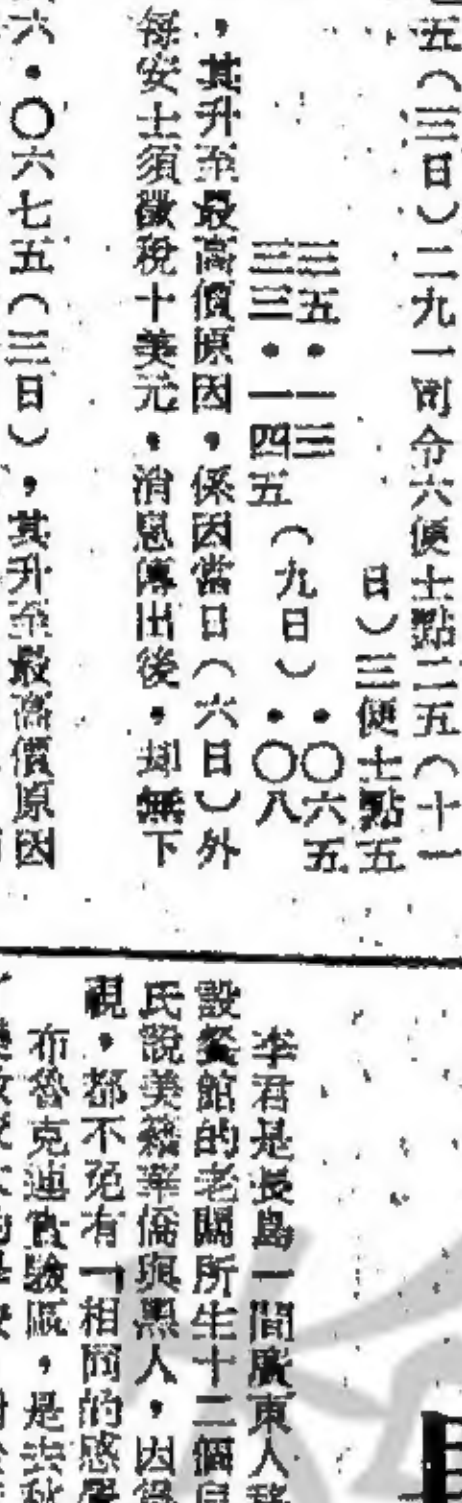 五（三日）二九一司令六便士點二五（十一
日）三便士點五
三五・一三　・〇六五
三三・一四五（九日）・〇八
，其升至最高價原因，係因當日（六日）外
每安士須徵稅十美元，消息傳出後，却無下
六・〇六七五（三日），其升至最高價原因
李君是長島一間廣東人
設餐館的老闆所生十二個
氏說美籍華僑與黑人，因
視，都不免有一相同的感
布魯克連實驗區，是去秋